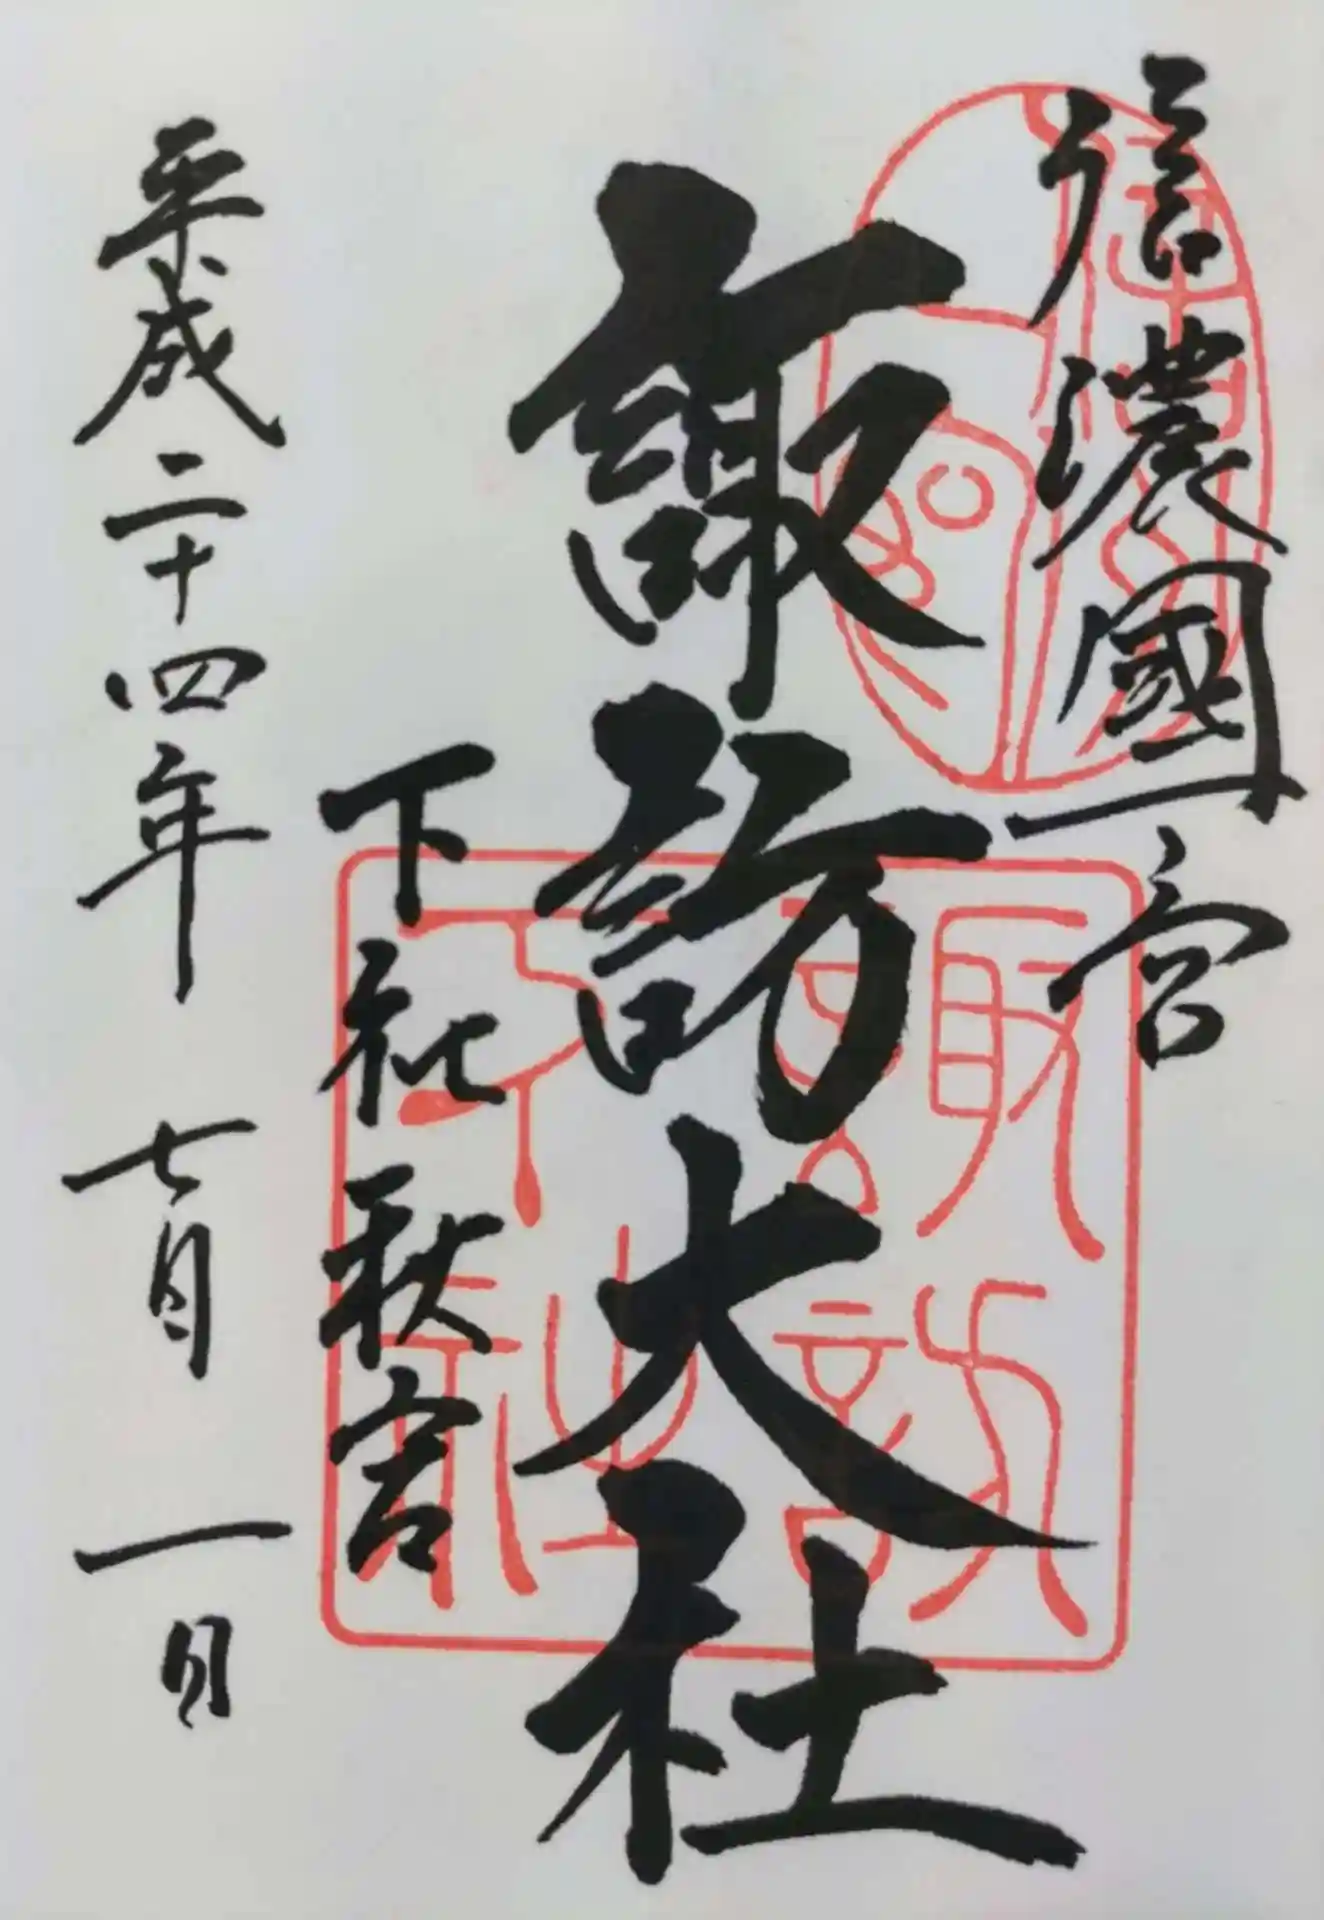 信濃國一宮
諏訪大社
下社秋宮
平成二十四年 七月 一日